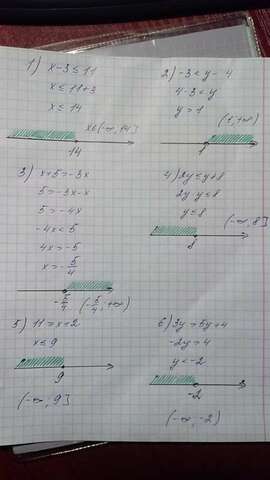 1) x-3≤11
x≤11+3
x≤14
x∈(-∞,14]
14
2) -3<y-4
4-3<y
y>1
(1,+∞)
1
3) x+5>-3x
5>-3x-x
5>-4x
-4x<5
4x>-5
x>-5/4
-5/4
(-5/4,+∞)
4) 2y≤y+8
2y-y≤8
y≤8
(-∞,8]
8
5) 11≥x+2
x≤9
9
(-∞,9]
6) 3y>5y+4
-2y>4
y<-2
-2
(-∞,-2)